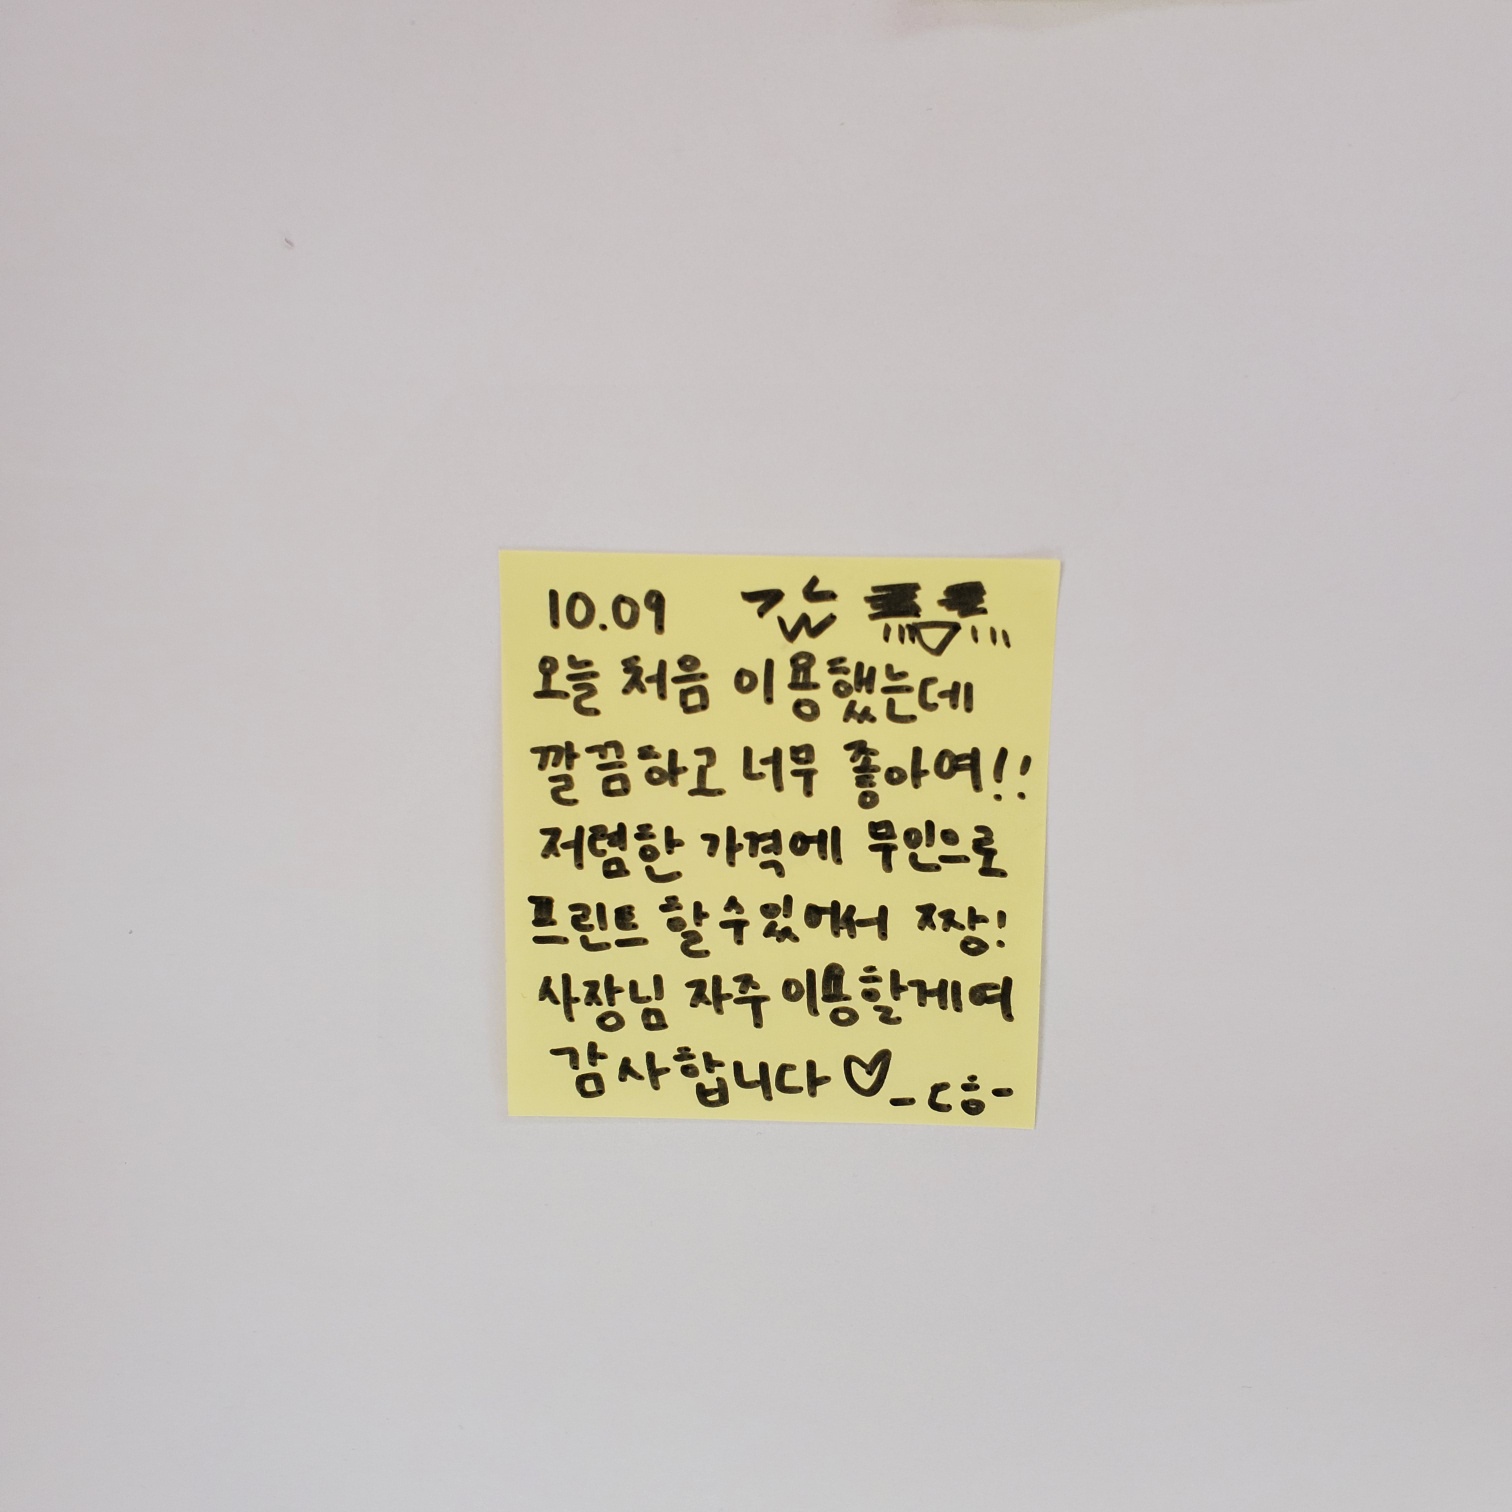 10.09
오늘 처음 이용했는데
깔끔하고 너무 좋아여!!
저렴한 가격에 무인으로
프린트 할 수 있어서 짱!
사장님 자주 이용할게여
감사합니다♡ -ㄷㅎ-